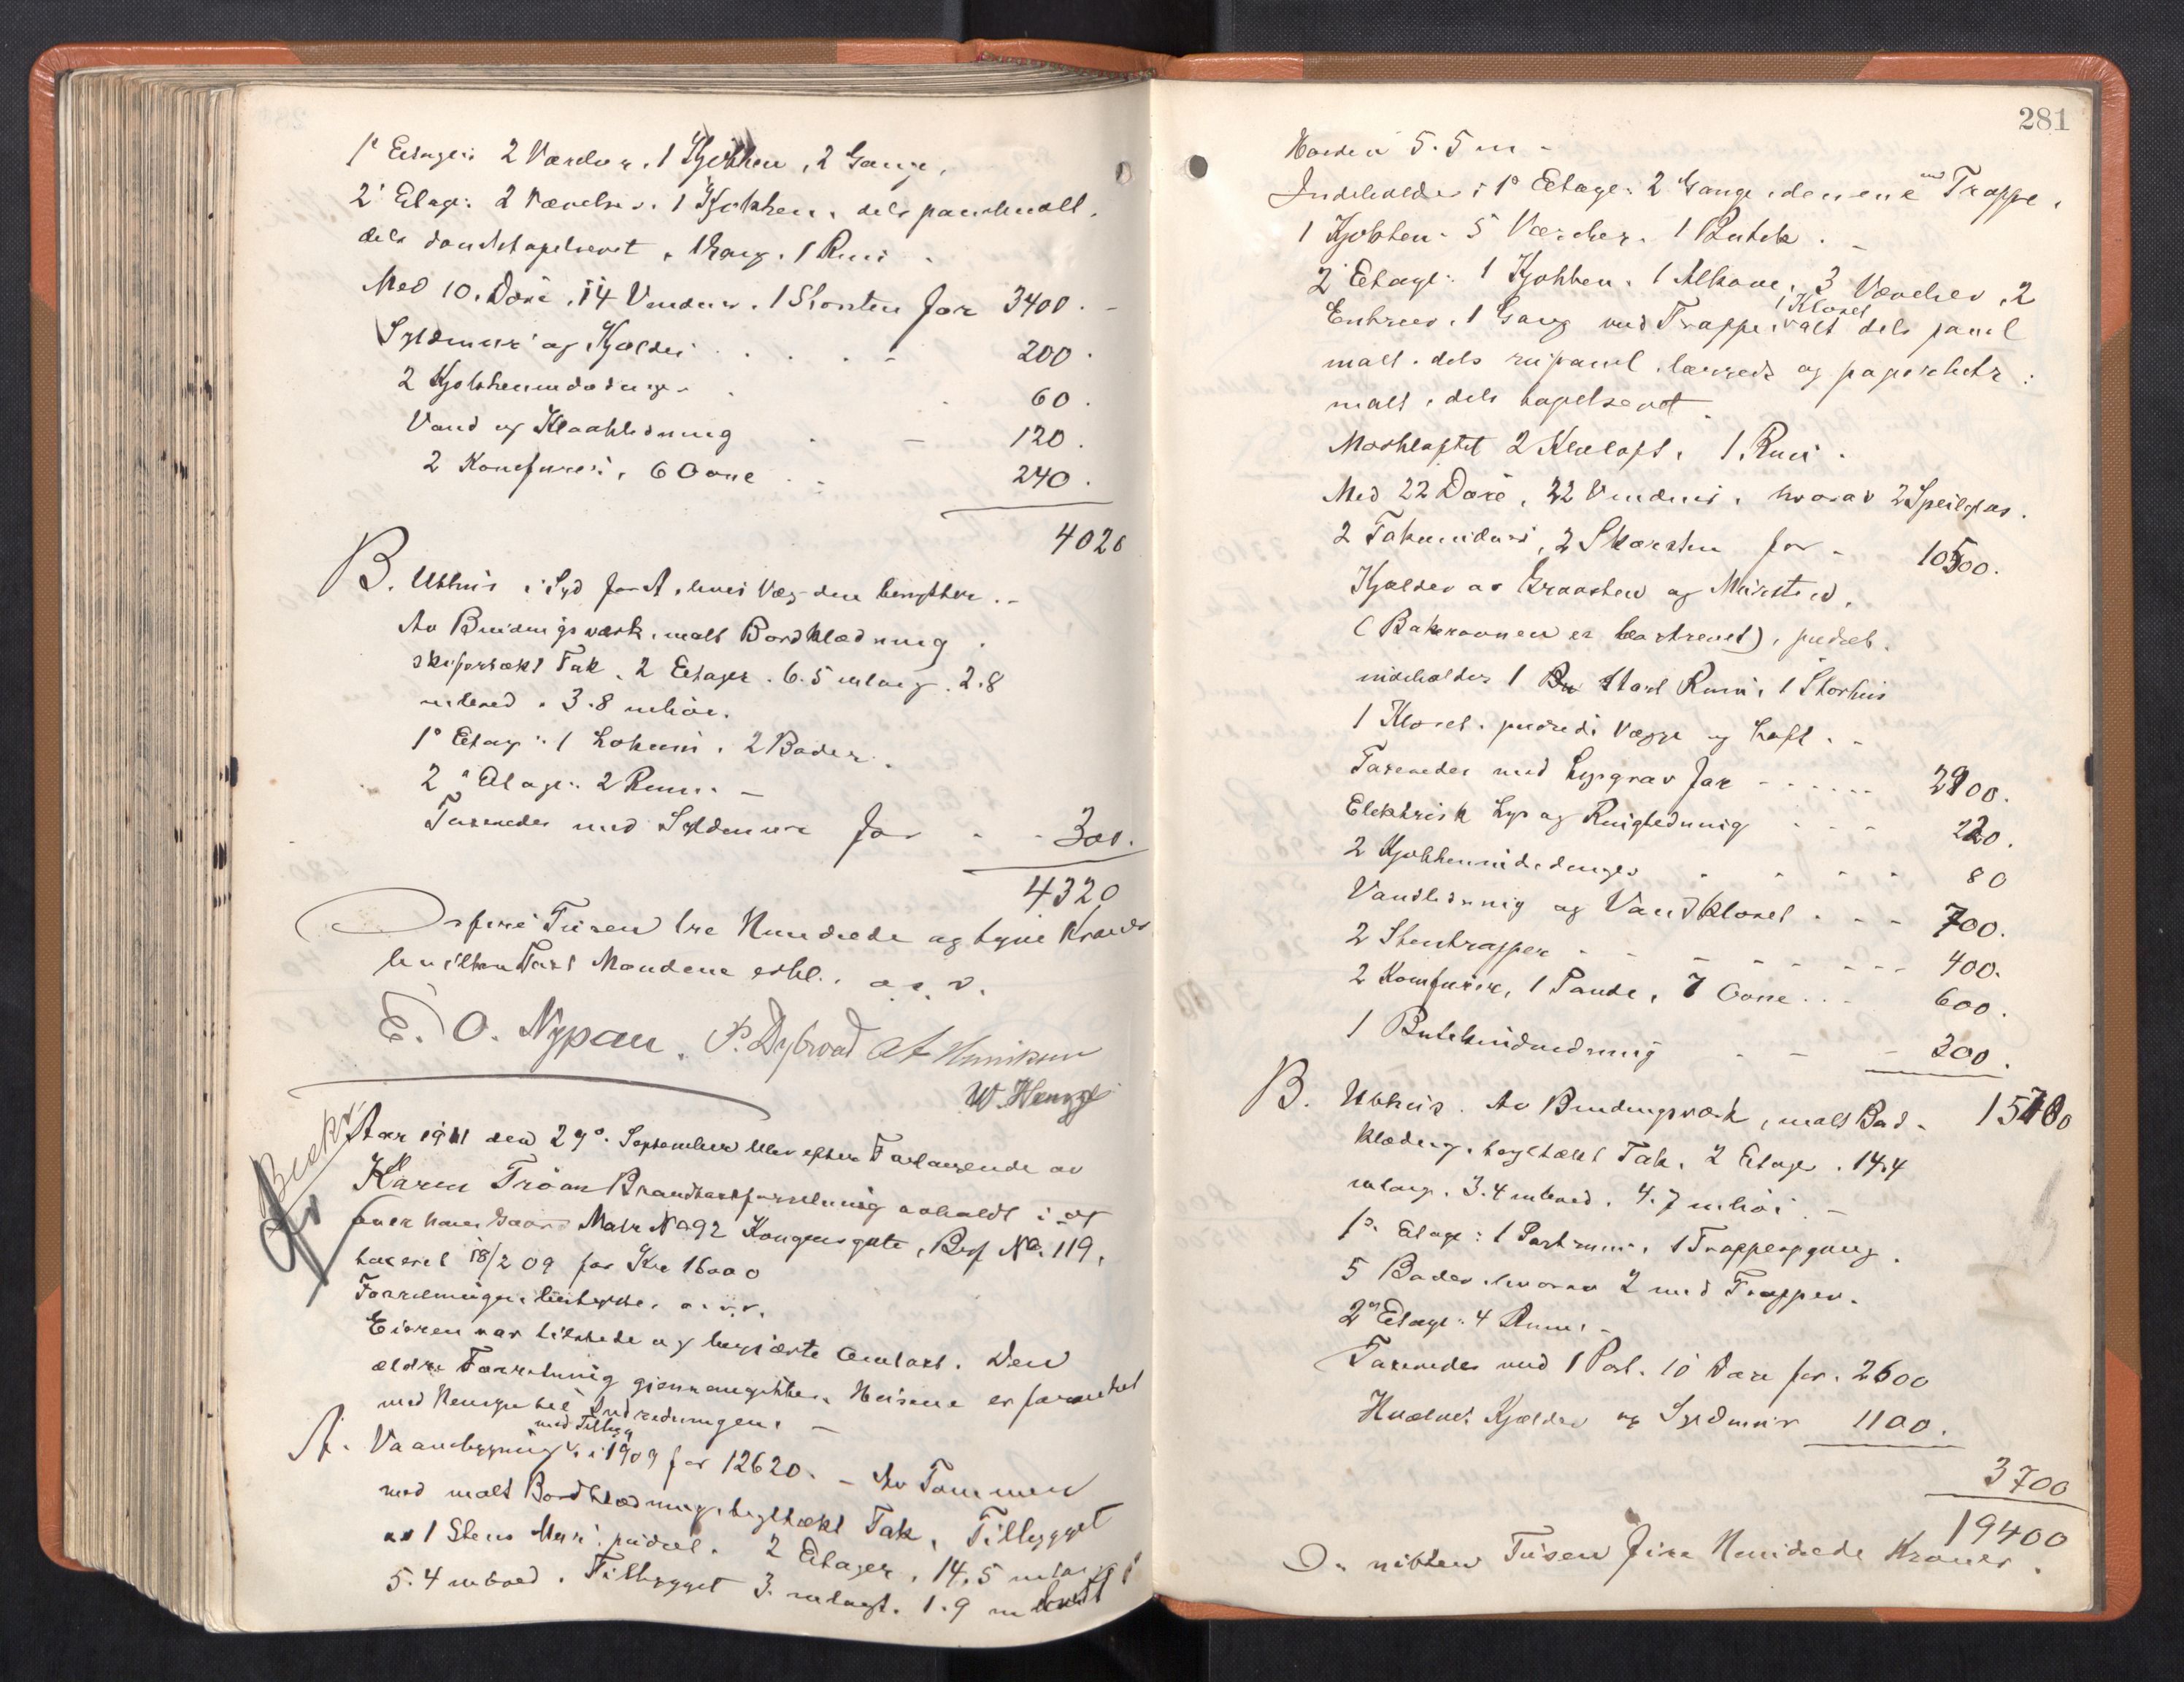 1ste Etage: 2 Værelser, 1 Kjøkken, 2 Gange,
2' Etage: 2 Værelser. 1 Kjøkken, dels panelmalt,
dels tapetseret, 1 Gang. 1 Rum.
Med 10. Døre, 14 Vinduer. 1 Skorsten for 3400.
Syldmur og Kjelder 200.
2 Kjøkkenindredninger 60.
Vand og Kloakledning 120.
2 Komfurer, 6 Ovne 240.
4020
B. Uthus i Syd for A, hvis Væg den benytter.
Av Bindingsværk, malt Bordklædning.
skifertækt Tak, 2 Etager. 6.5 m lang. 2.8
m bred. 3.8 m høi.
1ste Etage: 1 Lokum. 2 Boder.
2den Etage: 2 Rum.
Taxeredes med Syldmur for 300.
4320
Os fire Tusen tre Hundrede og tyve Kroner
hvilken Taxt Mændene erkl. o.s.v.
E. O. Nypan. P. Dybwad A Henriksen
W. Henze
Aar 1911 den 29de September blev efter Forlangende av
Karen Trøan Brandtaxtforretning avholdt i og
over hans Gaard Matr No 92 Kongensgate, Brf No. 119,
taxeret 18/2 09 for Kr 16000
Forretningen bestyrtes o.s.v.
Eieren var tilstede og begjærte Omtaxt. Den
ældre Forretning gjennemgikkes. Husene er forandret
med Hensyn til Indredningen.
med Tilbyg
A. Vaaningsbygning i 1909 for 12620. - Av Tømmer
med malt Bordklædning, tegltækt Tak, Tilbygget
av 1 Stens Mur, pudset. 2 Etager, 14.5 m lang
5.4 m bred. Tilbygget 3. m langt. 1.9 m bredt
281
Høiden 5.5 m -
Indeholder i 1ste Etage: 2 Gange, den ene med Trappe,
1 Kjøkken. 5 Værelser. 1 Butik.
2' Etage: 1 Kjøkken. 1 Alkove, 3 Værelser, 2
1 Kloset
Entreer, 1 Gang med Trappe, alt dels panel
malt, dels rupanel, lærreds og papirklædt:
malt, dels tapetseret
Mørkloftet 2 Kleloft, 1 Rum.
Med 22 Døre, 22 Vinduer, hvorav 2 Speilglas.
2 Takvinduer, 2 Skorsten for - 10500.
Kjelder av Graasten og Mursten,
(Bakerovnen er bortrevet), pudset.
indeholder 1 stort Rum, 1 Storhus
1 Kloset. pudsede Vægge og Loft.
Taxeredes med Lysgrav for 2900.
Elektrisk Lys og Ringledning 220.
2 Kjøkkenindredninger 80
Vandledning og Vandkloset 700.
2 Stentrapper 400.
2 Komfurer, 1 Pande, 7 Ovne 600.
1 Butikindredning 300.
15700
B. Uthus. Av Bindingsværk, malt Bord-
klædning, tegltækt Tak, 2 Etager. 14.4
m lang. 3.4 m bred. 4.7 m høi. -
1ste Etage: 1 Portrum, 1 Trappeopgang.
5 Boder, hvorav 2 med Trapper.
2den Etage: 4 Rum.
Taxeredes med 1 Port. 10 Døre for. 2600
Hvælvet Kjelder og Syldmur 1100.
3700
19400
Os nitten Tusen fire Hundrede Kroner.